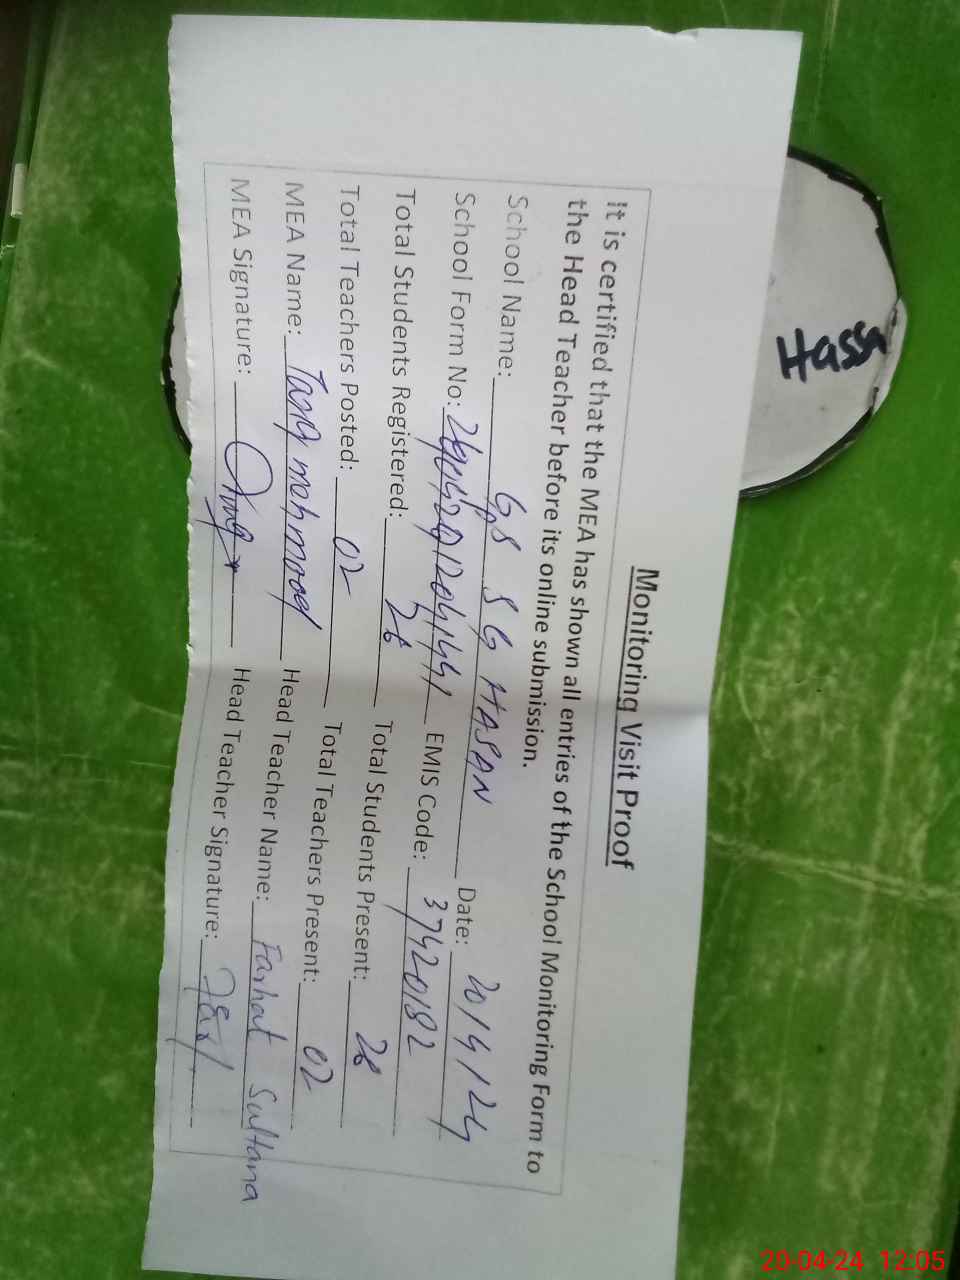 Monitoring Visit Proof
It is certified that the MEA has shown all entries of the School Monitoring Form to
the Head Teacher before its online submission.
School Name: GPS S G HASAN Date: 20/4/24
School Form No: EMIS Code: 37420182
Total Students Registered: 26 Total Students Present: 26
Total Teachers Posted: 02 Total Teachers Present: 02
MEA Name: Tariq mehmood Head Teacher Name: Farhat Sultana
MEA Signature: Head Teacher Signature:
Hassa
20-04-24 12:05